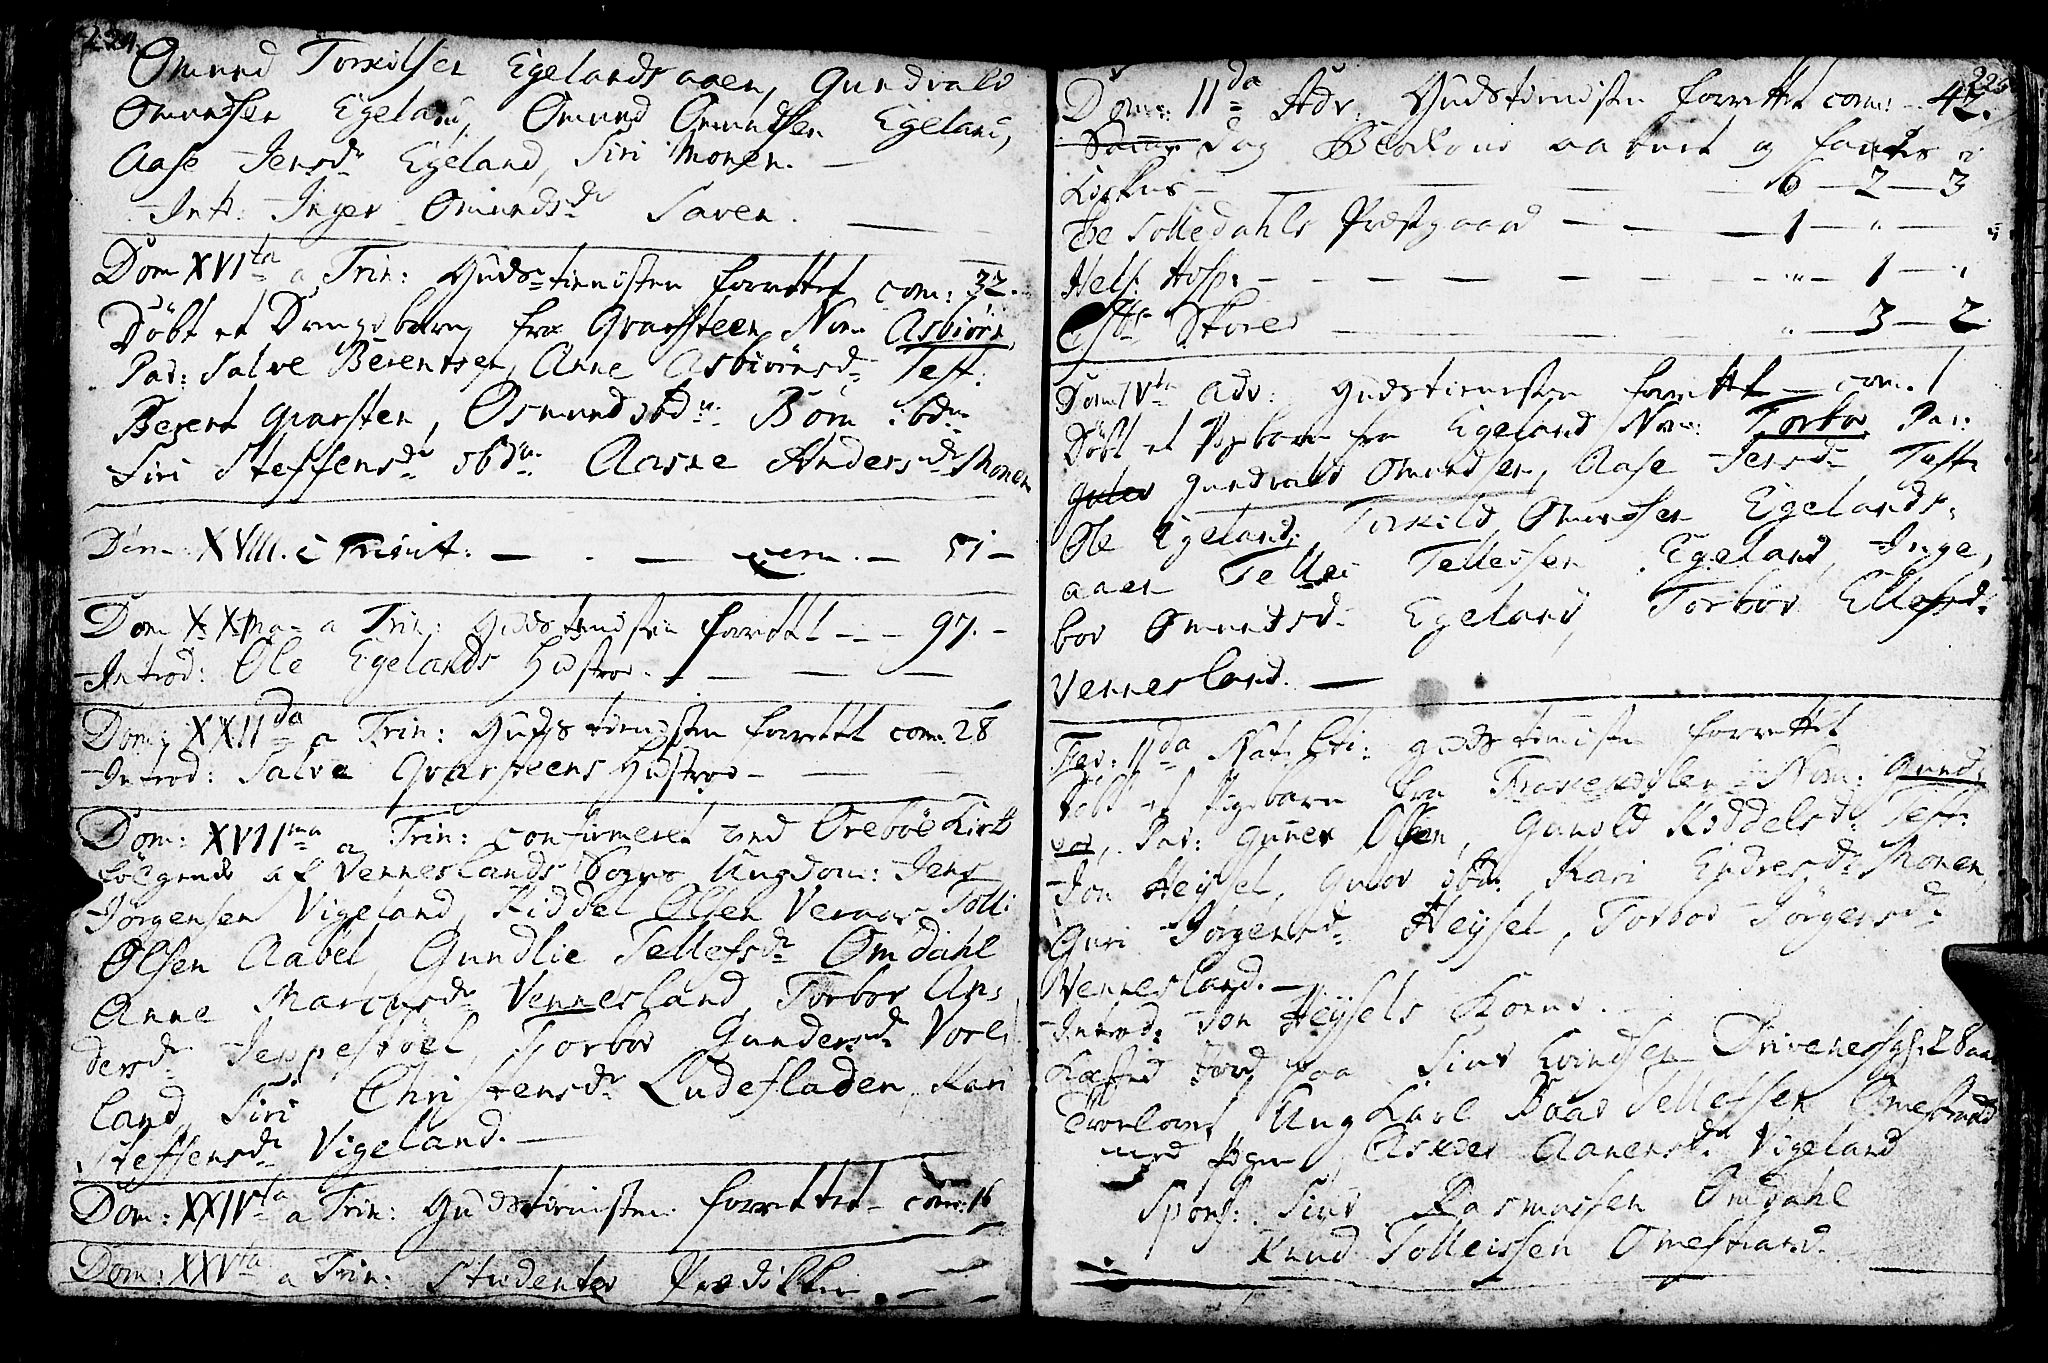 224.
Omund Torkilsen Egelands aaen, Gundvald
Omundsen Egeland, Omund Omundsen Egeland,
Aase Jensdr Egeland, Siri Monen. —
Int: Inger Omundsdr Saren. —
Dom XVIta a Trin: Gudstienisten forrettet com: 32.
Döbt et Drengebarn fra Qvarsteen, Nom. Asbiörn,
Par: Salve Berentsen, Anne Asbiörnsdr Test:
Berent Qvarsten, Osmund ibdm: Börn ibdm
Siri Steffensdr ibdm: Aasne Andersdr Monen
Dom: XVIII. a Trinit: — . — com. — 51 —
Dom XXma a Trin: Gudstienisten forrettet — — 97. —
Introd: Ole Egelands Hustroe. — — — —
Dom: XXIIda a Trin: Gudstienisten forrettet com: 28
Introd: Salve Qvarsteens Hustroe — — —
Dom: XVIIma a Trin: confirmeret ved Oreböe Kirke
fölgende af Venneslands Sogns Ungdom: Jens
Jörgensen Vigeland, Kiddel Olsen Veraas, Tolli
Olsen Aabel, Gundlie Tellefsdr Omdahl
Anne Marcusdr Vennesland, Torbor An,
dersdr Jeppestöel, Torbor Gundersdr Vore,
land, Siri Christensdr Ludefladen, Kari
Steffensdr Vigeland. —
Dom: XXIVta a Trin: Gudstienisten forrettet — com: 16
Dom: XXVta a Trin: Studenter Prædikken. — —
225
Dom: IIda Adv: Gudstienisten forrettet com: — 42.
dag Blokken aabnet og fantes i
Kirkens — — — — — 6 — 2 — 3
Tollledahls Præstgaard — — — 1 — " — "
Hels. Hosp: — — — — — — " — 1 — "
Skoler — — — — " — 3 — 2.
Dom IVta Adv: Gudstienisten forrettet — com. 1
Döbt et Pigebarn fra Egeland Nom: Torbor Par:
Gundvald Omundsen, Aase Jensdr Test:
Ole Egeland, Torkild Omundsen Egelands,
aaen Tellef Tellefsen Egeland, Inge,
bor Omundsdr Egeland, Torbor Ellefsdr
Vennesland. —
Fer: IIda Nat: Cti: gudstienisten forrettet
Döbt et Pigebarn fra Nom: Gund,
vor, Par: Guner Olsen, Gunild Kiddelsdr Test:
Jon Heysel, Guror ibdm Kari Endresdr Monen,
Guri Jörgensdr Heysel, Torbor Jörgensdr
Vennesland. —
Introd: Jon Heysels Kone. —
Kasted Jord paa Siur Evindsen Drivenes gl: 28 aar
Trorlovet Ung Karl Boar Tellefsen Omestrand
med Pigen Aasder Aanensdr Vigeland
Spons: Siur Rasmussen Omdahl
Knud Tolleissen Omestrand.